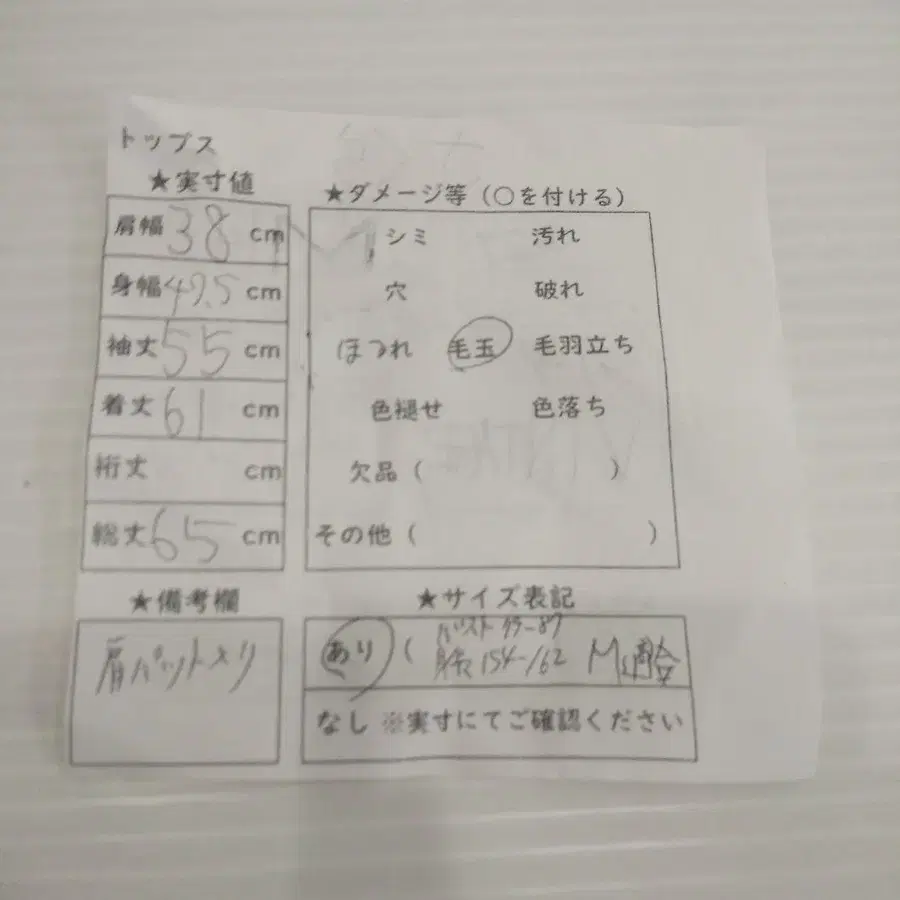 トップス
★実寸値
肩幅 38 cm
身幅 47.5 cm
袖丈 55 cm
着丈 61 cm
裄丈 cm
総丈 65 cm
★ダメージ等（○を付ける）
シミ 汚れ
穴 破れ
ほつれ 毛玉 毛羽立ち
色褪せ 色落ち
欠品（ ）
その他（ ）
★備考欄
肩パットメリ
★サイズ表記
あり（
バスト 79-87
身長 154-162 M適合
なし ※実寸にてご確認ください